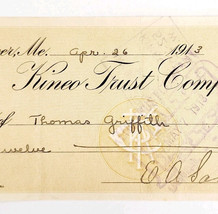 er, Me. Apr. 26 1913
Kineo Trust Comp
of Thomas Griffith
welve
E. A. Sa